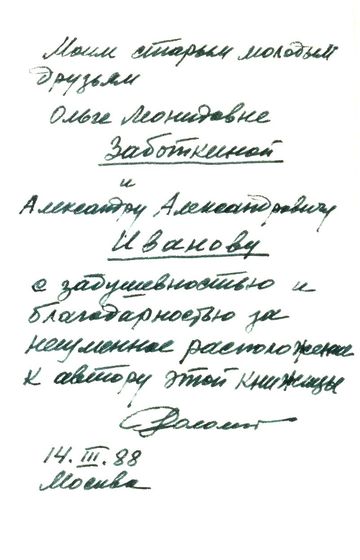 Моим старым молодым
друзьям
Ольге Леонидовне
Заботкиной
и
Александру Александровичу
Иванову
с задушевностью и
благодарностью за
неуменное расположение
к автору этой книжицы
14. III. 88
Москва